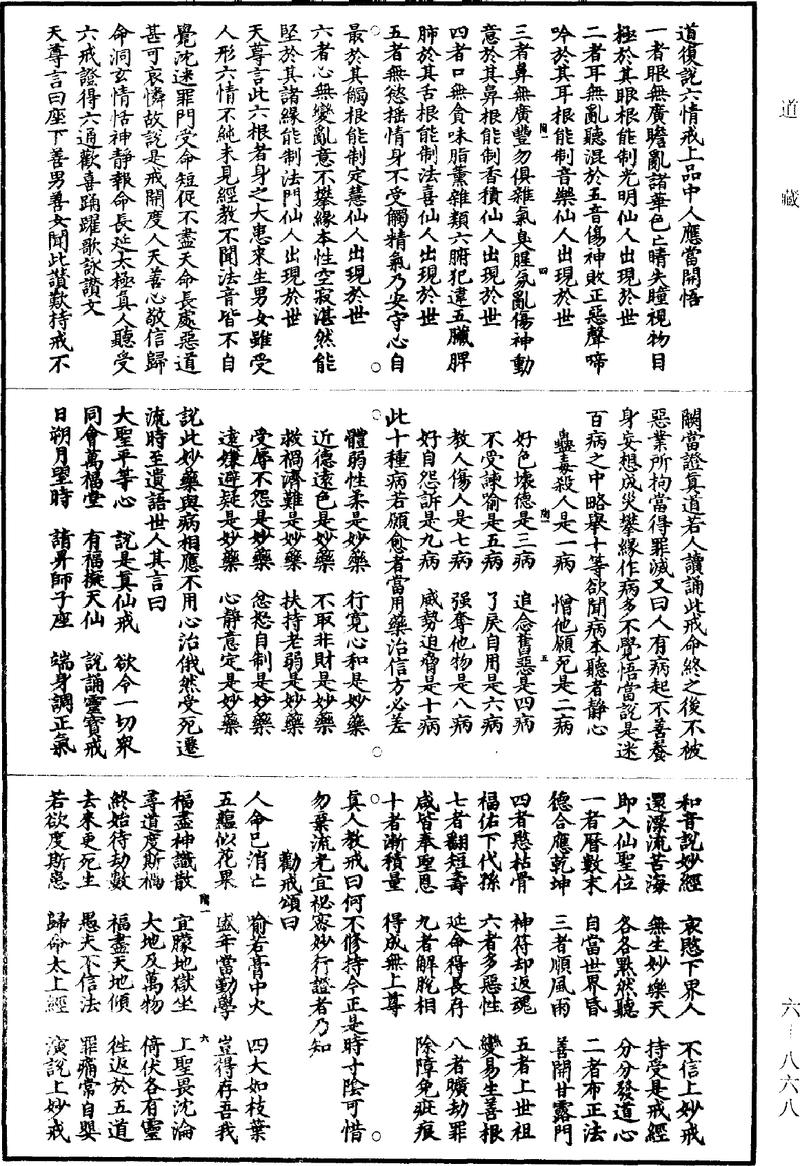 道藏
六—八六八
道復說六情戒上品中人應當開悟
一者眼無廣瞻亂諸華色亡睛失瞳視物目
極於其眼根能制光明仙人出現於世
二者耳無亂聽混於五音傷神敗正惡聲啼
吟於其耳根能制音樂仙人出現於世
三者鼻無廣豐勿俱雜氣臭腥氛亂傷神動
意於其鼻根能制香積仙人出現於世
四者口無貪味脂薰雜類六腑犯違五臟脾
肺於其舌根能制法喜仙人出現於世
五者無慾搖情身不受觸精氣乃安守心自
最於其觸根能制定慧仙人出現於世
六者心無變亂意不攀緣本性空寂湛然能
堅於其諸緣能制法門仙人出現於世
天尊言此六根者身之大患來生男女雖受
人形六情不純未見經教不聞法音皆不自
覺沈迷罪門受命短促不盡天命長處惡道
甚可哀憐故說是戒開度人天善心敬信歸
命洞玄情恬神靜報命長延太極真人聽受
六戒證得六通歡喜踊躍歌詠讚文
天尊言曰座下善男善女聞此讚歎持戒不
闕當證真道若人讀誦此戒命終之後不被
惡業所拘當得罪滅又曰人有病起不善養
身妄想成災攀緣作病多不覺悟當說是迷
百病之中略舉十等欲聞病本聽者靜心
蠱毒殺人是一病 憎他願死是二病
好色壞德是三病 追念舊惡是四病
不受諫喻是五病 了戾自用是六病
教人傷人是七病 强奪他物是八病
好自怨訴是九病 威勢迫脅是十病
此十種病若願愈者當用藥治信方必差
體弱性柔是妙藥 行寬心和是妙藥
近德遠色是妙藥 不取非財是妙藥
救禍濟難是妙藥 扶持老弱是妙藥
受辱不怨是妙藥 忿慾自制是妙藥
遠嫌避疑是妙藥 心靜意定是妙藥
說此妙藥與病相應不用心治俄然受死遷
流時至遺語世人其言曰
大聖平等心 說是真仙戒 欲令一切衆
同會萬福堂 有福擬天仙 說誦靈寶戒
日朔月望時 請昇師子座 端身調正氣
和音說妙經 哀愍下界人 不信上妙戒
還漂流苦海 無生妙樂天 持受是戒經
即入仙聖位 各各黙然聽 分分發道心
一者曆數末 自當世界昏 二者布正法
德合應乾坤 三者順風雨 善開甘露門
四者愍枯骨 神符却返魂 五者上世祖
福佑下代孫 六者多惡性 變易生善根
七者翻短壽 延命得長存 八者曠劫罪
咸皆奉聖恩 九者解脫相 除障免疵痕
十者漸積量 得成無上尊
真人教戒曰何不修持今正是時寸陰可惜
勿棄流光宜祕密妙行證者乃知
勸戒頌曰
人命已消亡 喻若膏中火 四大如枝葉
五蘊似花果 盛年當勤學 豈得存吾我
福盡神識散 宜朦地獄坐 上聖畏沈淪
尋道度斯禍 大地及萬物 倚伏各有靈
終始待劫數 福盡天地傾 往返於五道
去來更死生 愚夫不信法 罪痛常自嬰
若欲度斯患 歸命太上經 演說上妙戒